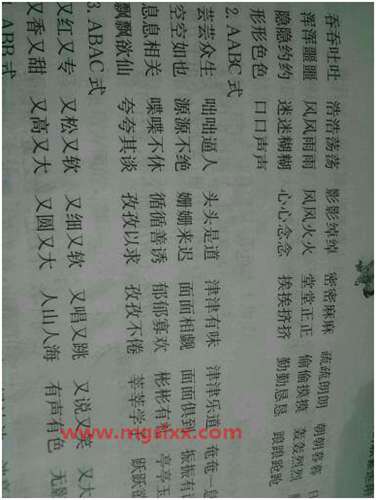 吞吞吐吐 浩浩荡荡 影影绰绰 密密麻麻 疏疏朗朗 朝朝暮暮
浑浑噩噩 风风雨雨 风风火火 堂堂正正 偷偷摸摸 轰轰烈烈
隐隐约约 迷迷糊糊 心心念念 挨挨挤挤 勤勤恳恳 踉踉跄跄
形形色色 口口声声
2. AABC 式
芸芸众生 咄咄逼人 头头是道 津津有味 津津乐道 奄奄一
空空如也 源源不绝 姗姗来迟 面面相觑 面面俱到 振振有
息息相关 喋喋不休 循循善诱 郁郁寡欢 彬彬有 亭亭玉
飘飘欲仙 夸夸其谈 孜孜以求 孜孜不倦 莘莘学子 跃跃欲
3. ABAC 式
又红又专 又松又软 又细又软 又唱又跳 又说又笑 又大
又香又甜 又高又大 又圆又大 人山人海 有声有色 无影
ABB 式
www.mgflxx.com